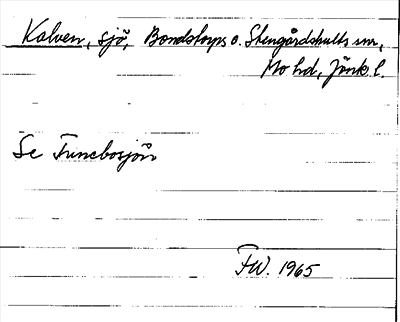 Kalven, sjö, Bondstorps o. Stengårdshults snr,
Mo hd, Jönk l.
Se Trinebosjön
FW. 1965